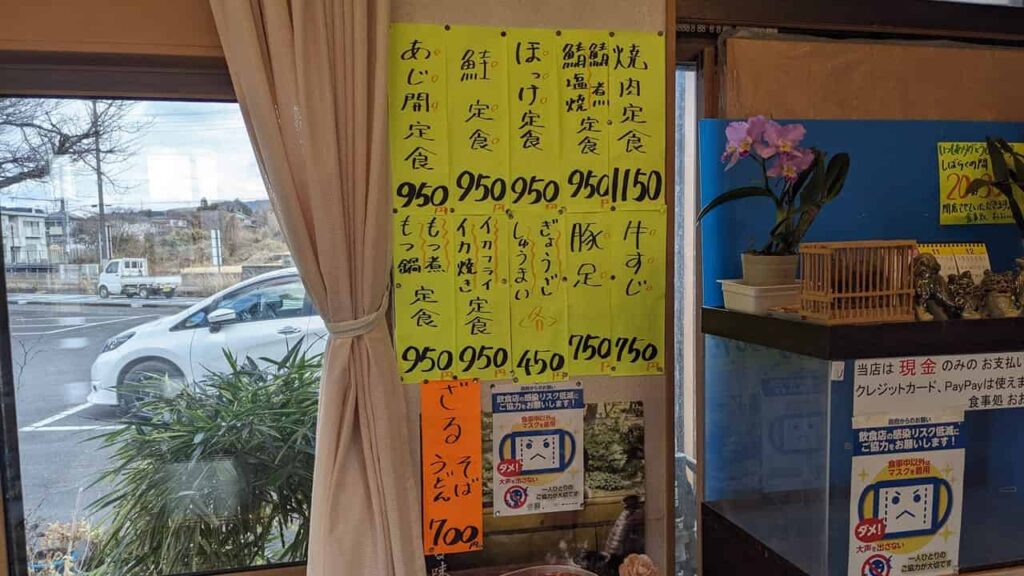 焼肉定食
1150
鯖煮
鯖塩焼
定食
950
ほっけ定食
950
鮭定食
950
あじ開定食
950円
牛すじ
750
豚足
750
ぎょうざ
しゅうまい
各
450円
イカフライ
イカ焼き
定食
950円
もつ煮
もつ鍋
定食
950円
ざる
そば
うどん
700円
飲食店の感染リスク低減に
ご協力をお願いします!
食事中以外は
マスクを着用
ダメ!
大声を出さない
一人ひとりの
ご協力が大切です
しばらくの間
当店は 現金 のみの お支払い
クレジットカード、PayPayは使えま
食事処 おお
政府からのお願い
飲食店の感染リスク低減に
ご協力をお願いします!
食事中以外は
マスクを着用
ダメ!
大声を出さない
一人ひとりの
ご協力が大切です